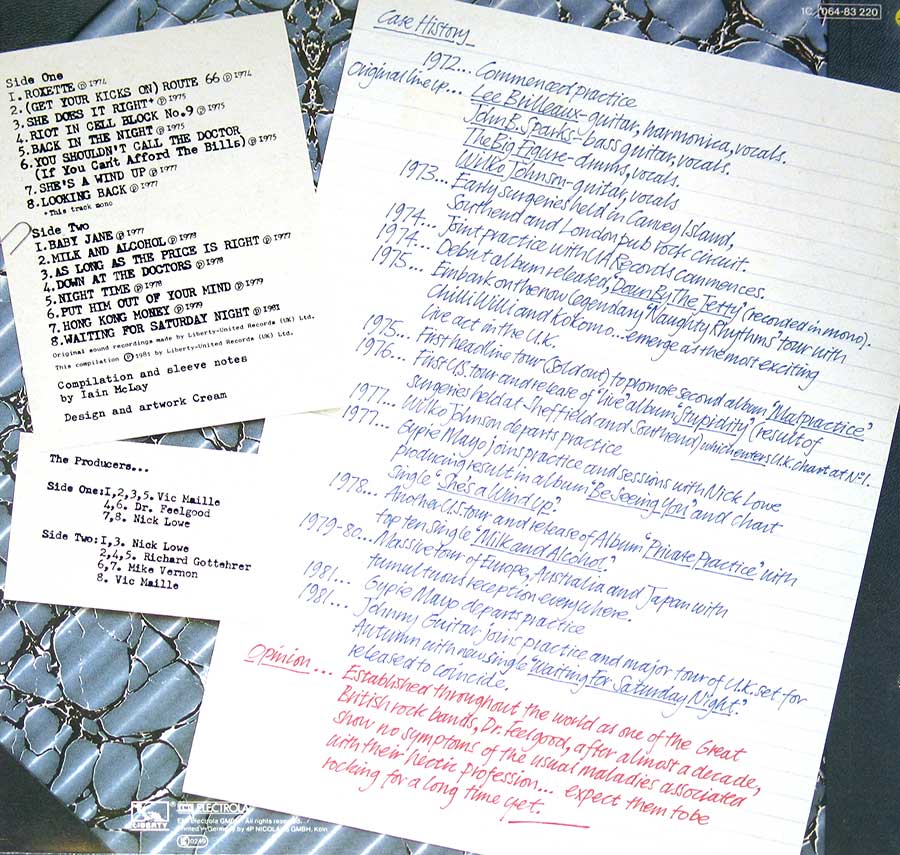 1C 064-83 220
Side One
1. ROXETTE Ⓟ 1974
2. (GET YOUR KICKS ON) ROUTE 66 Ⓟ 1974
3. SHE DOES IT RIGHT* Ⓟ 1975
4. RIOT IN CELL BLOCK No.9 Ⓟ 1975
5. BACK IN THE NIGHT Ⓟ 1975
6. YOU SHOULDN'T CALL THE DOCTOR
(If You Can't Afford The Bills) Ⓟ 1975
7. SHE'S A WIND UP Ⓟ 1977
8. LOOKING BACK Ⓟ 1977
*This track mono
Side Two
1. BABY JANE Ⓟ 1977
2. MILK AND ALCOHOL Ⓟ 1978
3. AS LONG AS THE PRICE IS RIGHT Ⓟ 1977
4. DOWN AT THE DOCTORS Ⓟ 1978
5. NIGHT TIME Ⓟ 1978
6. PUT HIM OUT OF YOUR MIND Ⓟ 1979
7. HONG KONG MONEY Ⓟ 1979
8. WAITING FOR SATURDAY NIGHT Ⓟ 1981
Original sound recordings made by Liberty-United Records (UK) Ltd.
This compilation Ⓟ 1981 by Liberty-United Records (UK) Ltd.
Compilation and sleeve notes
by Iain McLay
Design and artwork Cream
The Producers...
Side One: 1,2,3,5. Vic Maille
4,6. Dr. Feelgood
7,8. Nick Lowe
Side Two: 1,3. Nick Lowe
2,4,5. Richard Gottehrer
6,7. Mike Vernon
8. Vic Maille
Case History
1972... Commenced practice
Original line up... Lee Brilleaux - guitar, harmonica, vocals.
John B. Sparks - bass guitar, vocals.
The Big Figure - drums, vocals.
Wilko Johnson - guitar, vocals
1973... Early surgeries held in Canvey Island,
Southend and London pub rock circuit.
1974... Joint practice with UA Records commences.
1974... Debut album released, "Down By The Jetty" (recorded in mono).
1975... Embark on the now legendary "Naughty Rhythms" tour with
Chilli Willi and Kokomo... emerge as the most exciting
live act in the U.K.
1975... First headline tour (Sold out) to promote second album "Malpractice"
1976... First U.S. tour and release of 'live' album "Stupidity" (result of
surgeries held at Sheffield and Southend) which enters U.K. chart at No. 1.
1977... Wilko Johnson departs practice
1977... Gypie Mayo joins practice and sessions with Nick Lowe
producing result in album "Be Seeing You" and chart
single "She's a Wind Up".
1978... Another U.S. tour and release of Album "Private Practice" with
top ten single "Milk and Alcohol."
1979-80... Massive tour of Europe, Australia and Japan with
tumultuous reception everywhere.
1981... Gypie Mayo departs practice
1981... Johnny Guitar joins practice and major tour of U.K. set for
Autumn with new single "Waiting for Saturday Night."
released to coincide.
Opinion... Established throughout the world as one of the Great
British rock bands, Dr. Feelgood, after almost a decade,
show no symptoms of the usual maladies associated
with their hectic profession... expect them to be
rocking for a long time yet.
LIBERTY
EMI ELECTROLA
EMI Electrola GMBH All rights reserved.
Printed in Germany by 4P NICOLAUS GMBH, Köln